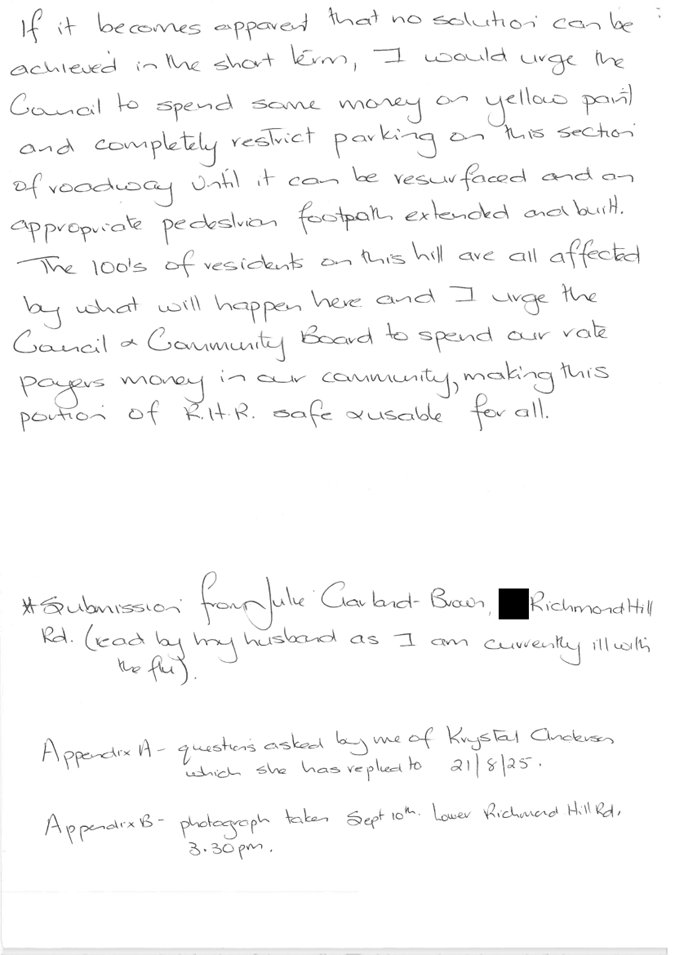 If it becomes apparent that no solution can be
achieved in the short term, I would urge the
Council to spend some money on yellow paint
and completely restrict parking on this section
of roadway until it can be resurfaced and an
appropriate pedestrian footpath extended and built.
The 100's of residents on this hill are all affected
by what will happen here and I urge the
Council & Community Board to spend our rate
payers money in our community, making this
portion of R.H.R. safe & usable for all.
# Submission from Julie Richmond Hill
Rd. (read by my husband as I am currently ill with
the flu).
Appendix A - questions asked by me of Krystal Anderson
which she has replied to 21/8/25.
Appendix B - photograph taken Sept 10th. Lower Richmond Hill Rd,
3.30pm.